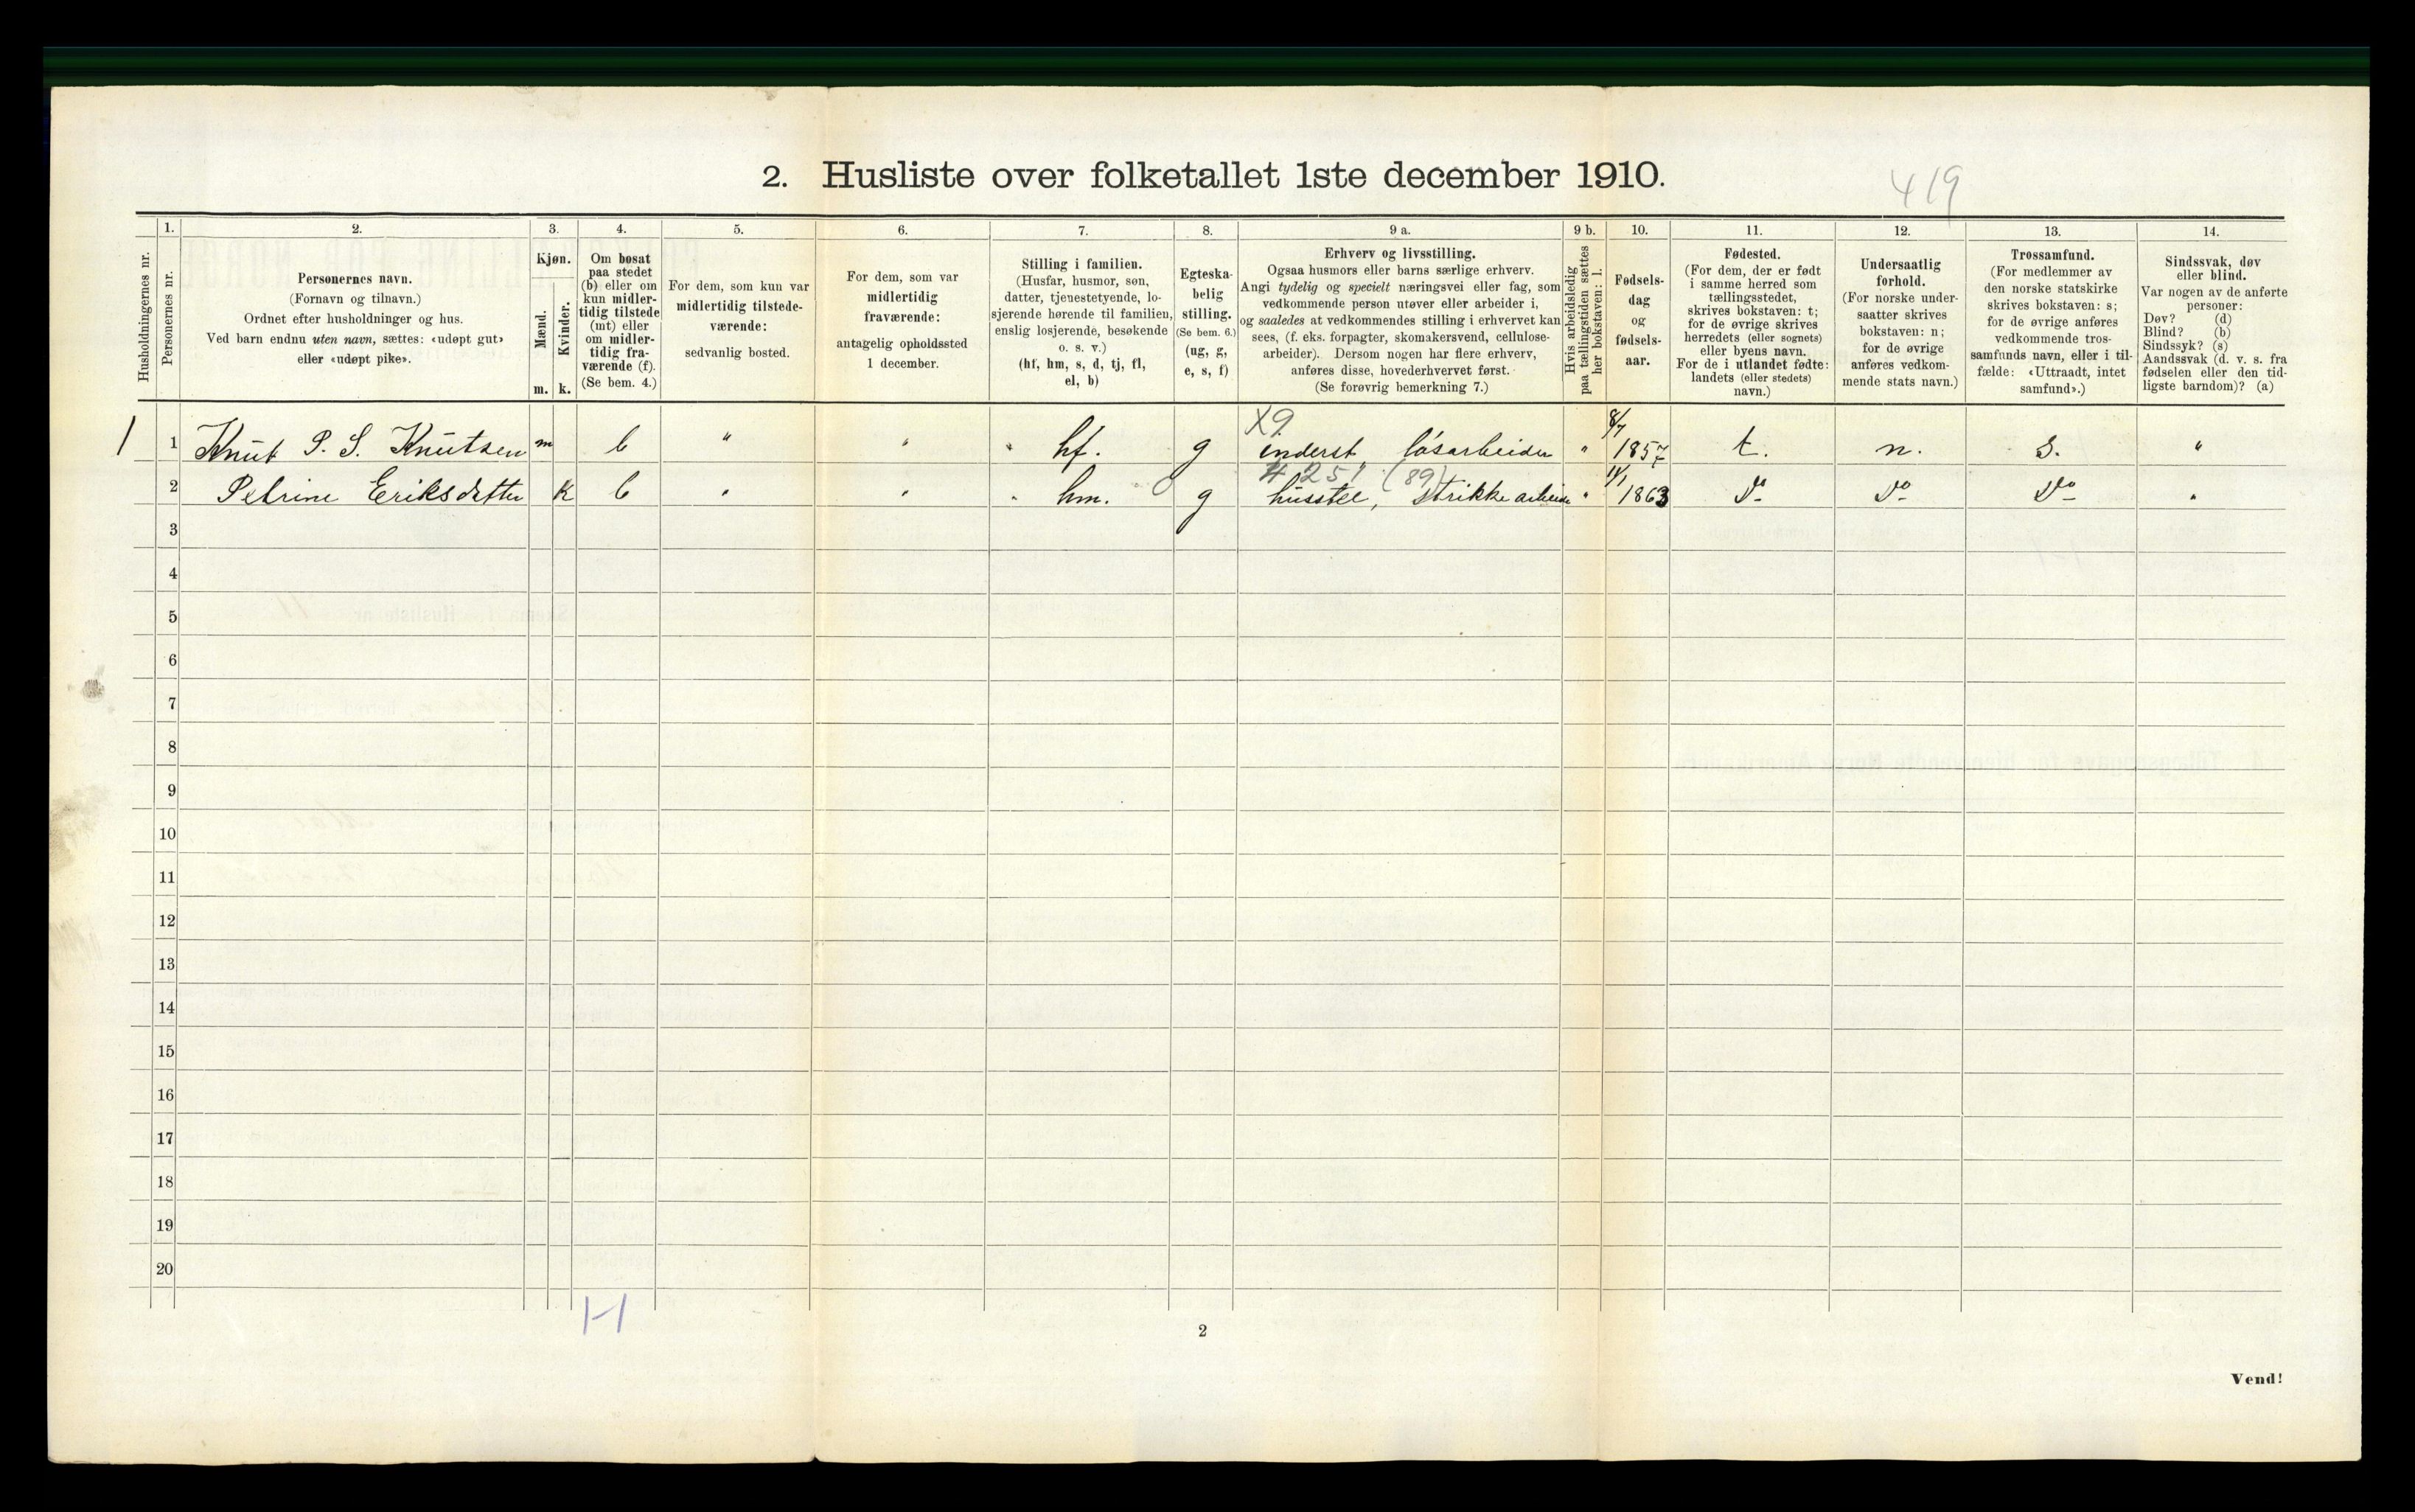 2. Husliste over folketallet 1ste december 1910.
419
Husholdningernes nr.
1.
Personernes nr.
2.
Personernes navn.
(Fornavn og tilnavn.)
Ordnet efter husholdninger og hus.
Ved barn endnu uten navn, sættes: «udøpt gut»
eller «udøpt pike».
3.
Kjøn.
Mænd.
Kvinder.
m.
k.
4.
Om bosat
paa stedet
(b) eller om
kun midler-
tidig tilstede
(mt) eller
om midler-
tidig fra-
værende (f).
(Se bem. 4.)
5.
For dem, som kun var
midlertidig tilstede-
værende:
sedvanlig bosted.
6.
For dem, som var
midlertidig
fraværende:
antagelig opholdssted
1 december.
7.
Stilling i familien.
(Husfar, husmor, søn,
datter, tjenestetyende, lo-
sjerende hørende til familien,
enslig losjerende, besøkende
o. s. v.)
(hf, hm, s, d, tj, fl,
el, b)
8.
Egteska-
belig
stilling.
(Se bem. 6.)
(ug, g,
e, s, f)
9 a.
Erhverv og livsstilling.
Ogsaa husmors eller barns særlige erhverv.
Angi tydelig og specielt næringsvei eller fag, som
vedkommende person utøver eller arbeider i,
og saaledes at vedkommendes stilling i erhvervet kan
sees, (f. eks. forpagter, skomakersvend, cellulose-
arbeider). Dersom nogen har flere erhverv,
anføres disse, hovederhvervet først.
(Se forøvrig bemerkning 7.)
9 b.
Hvis arbeidsledig
paa tællingstiden sættes
her bokstaven: l.
10.
Fødsels-
dag
og
fødsels-
aar.
11.
Fødested.
(For dem, der er født
i samme herred som
tællingsstedet,
skrives bokstaven: t;
for de øvrige skrives
herredets (eller sognets)
eller byens navn.
For de i utlandet fødte:
landets (eller stedets)
navn.)
12.
Undersaatlig
forhold.
(For norske under-
saatter skrives
bokstaven: n;
for de øvrige
anføres vedkom-
mende stats navn.)
13.
Trossamfund.
(For medlemmer av
den norske statskirke
skrives bokstaven: s;
for de øvrige anføres
vedkommende tros-
samfunds navn, eller i til-
fælde: «Uttraadt, intet
samfund».)
14.
Sindssvak, døv
eller blind.
Var nogen av de anførte
personer:
Døv? (d)
Blind? (b)
Sindssyk? (s)
Aandssvak (d. v. s. fra
fødselen eller den tid-
ligste barndom)? (a)
X9
1 1 Knut P. S. Knutsen m b " " " hf. g inderst, løsarbeider " 8/7 1857 t. n. s. "
4251 (89)
2 Petrine Eriksdatter k b " " " hm. g husstel, strikkearbeide " 11/1 1863 do do do "
3
4
5
6
7
8
9
10
11
12
13
14
15
16
17
18
19
20
1-1
2
Vend!